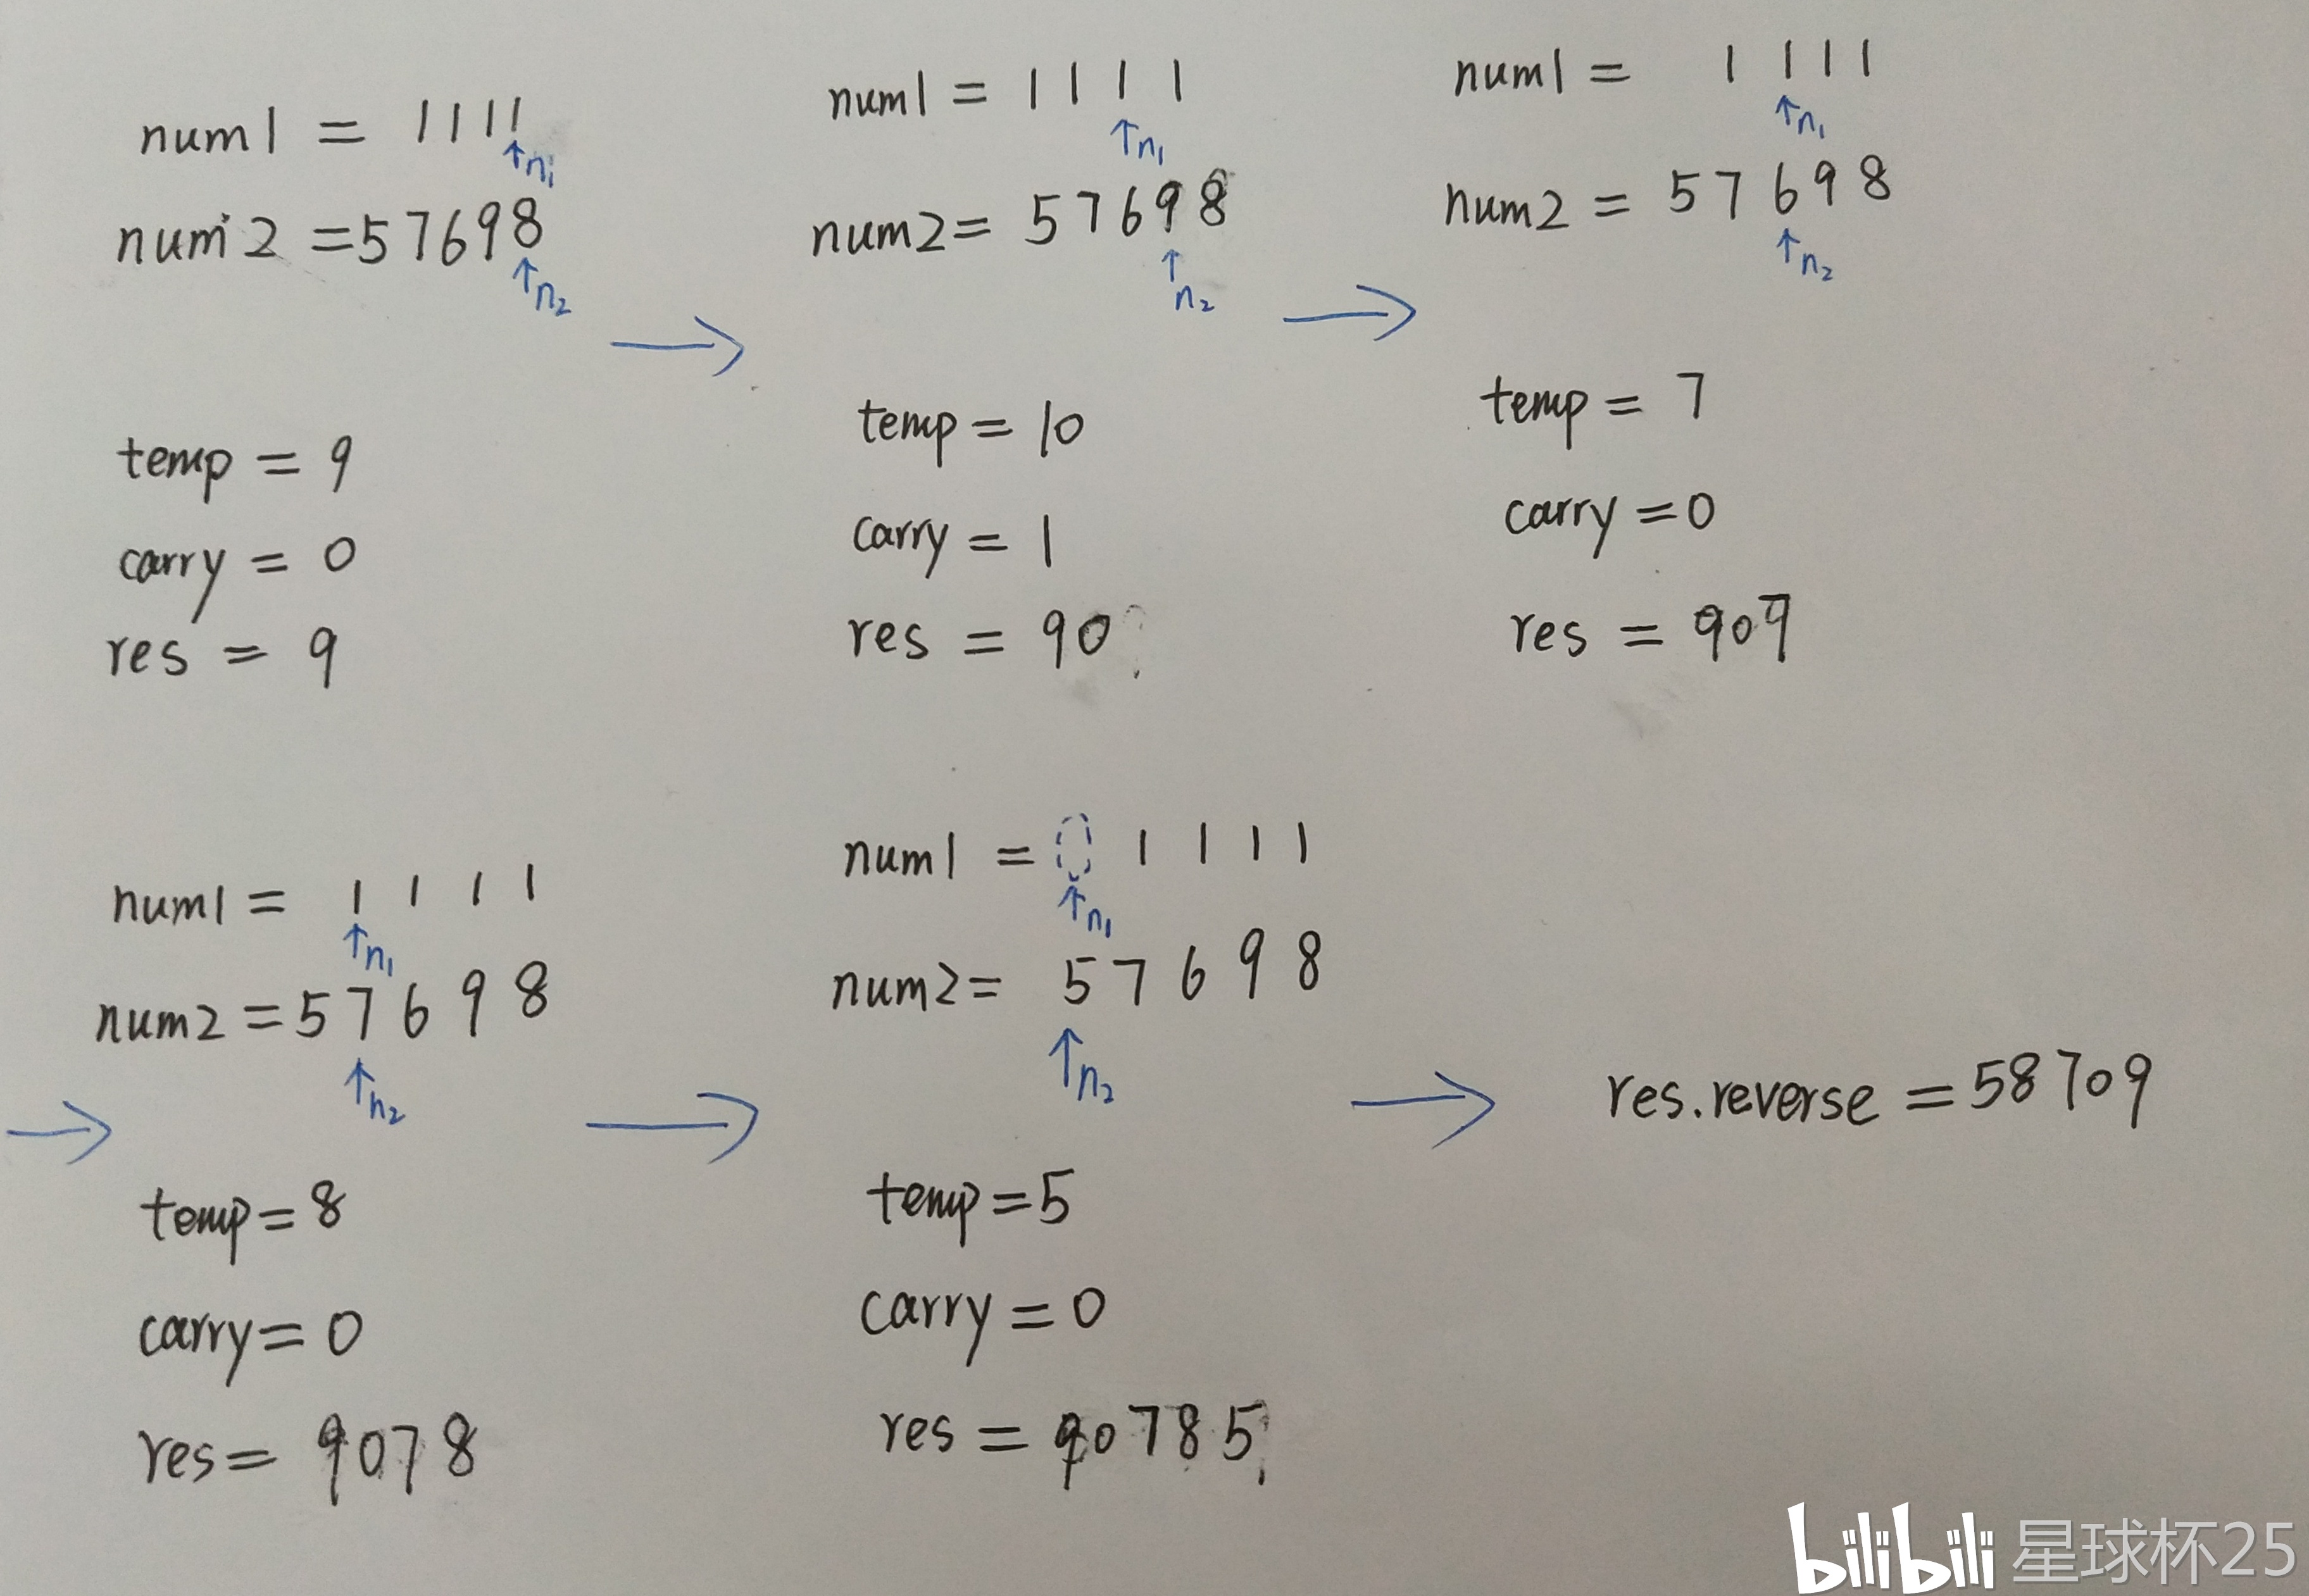 num1 = 1111
↑n₁
num2 = 57698
↑n₂
temp = 9
carry = 0
res = 9
→
num1 = 1111
↑n₁
num2 = 57698
↑n₂
temp = 10
carry = 1
res = 90
→
num1 = 1111
↑n₁
num2 = 57698
↑n₂
temp = 7
carry = 0
res = 907
→
num1 = 1111
↑n₁
num2 = 57698
↑n₂
temp = 8
carry = 0
res = 9078
→
num1 = 1111
↑n₁
num2 = 57698
↑n₂
temp = 5
carry = 0
res = 90785
→
res.reverse = 58709
bilibili 星球杯25